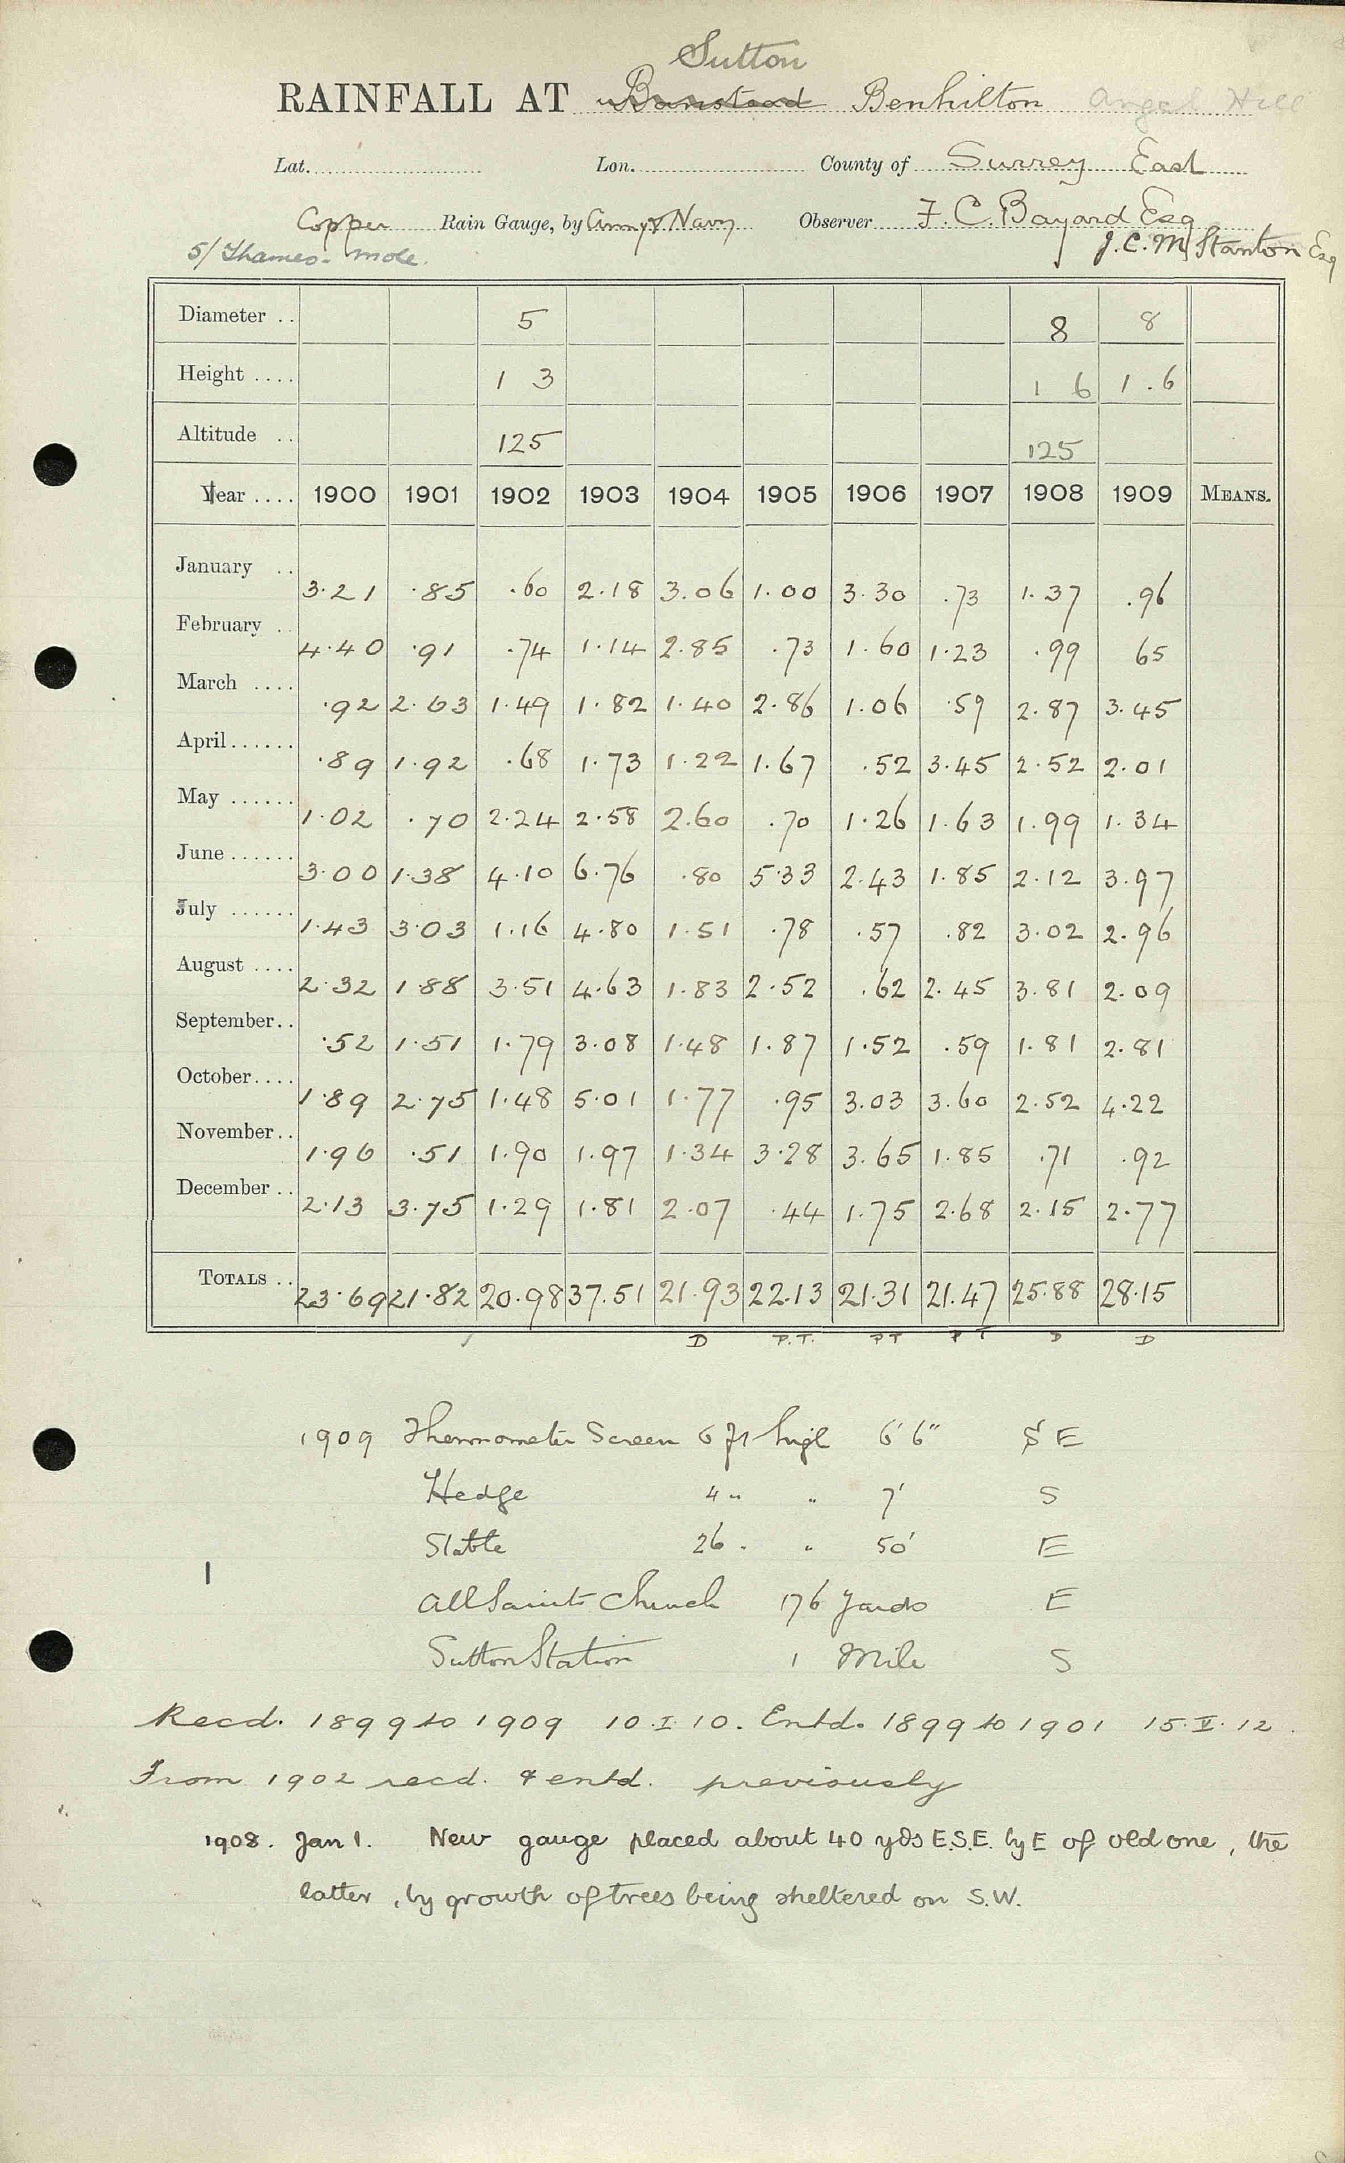 Sutton
RAINFALL AT Banstead Benhilton Angel Hill
Lat. Lon. County of Surrey East
Copper Rain Gauge, by Army & Navy Observer F. C. Bayard Esq
5/ Thames - Mole. J. C. M. Stanton Esq
Diameter .. 5 8 8
Height .... 1 3 1 6 1.6
Altitude .. 125 125
Year .... 1900 1901 1902 1903 1904 1905 1906 1907 1908 1909 MEANS.
January .. 3.21 .85 .60 2.18 3.06 1.00 3.30 .73 1.37 .96
February .. 4.40 .91 .74 1.14 2.85 .73 1.60 1.23 .99 65
March .... .92 2.63 1.49 1.82 1.40 2.86 1.06 .59 2.87 3.45
April ...... .89 1.92 .68 1.73 1.22 1.67 .52 3.45 2.52 2.01
May ...... 1.02 .70 2.24 2.58 2.60 .70 1.26 1.63 1.99 1.34
June ...... 3.00 1.38 4.10 6.76 .80 5.33 2.43 1.85 2.12 3.97
July ...... 1.43 3.03 1.16 4.80 1.51 .78 .57 .82 3.02 2.96
August .... 2.32 1.88 3.51 4.63 1.83 2.52 .62 2.45 3.81 2.09
September .. .52 1.51 1.79 3.08 1.48 1.87 1.52 .59 1.81 2.81
October .... 1.89 2.75 1.48 5.01 1.77 .95 3.03 3.60 2.52 4.22
November .. 1.96 .51 1.90 1.97 1.34 3.28 3.65 1.85 .71 .92
December .. 2.13 3.75 1.29 1.81 2.07 .44 1.75 2.68 2.15 2.77
TOTALS .. 23.69 21.82 20.98 37.51 21.93 22.13 21.31 21.47 25.88 28.15
D P.T. PT PT D D
1909 Thermometer Screen 6 ft high 6' 6" S E
Hedge 4 " " 7' S
Stable 26 " " 50' E
All Saints Church 176 Yards E
Sutton Station 1 Mile S
Recd. 1899 to 1909 10.I.10. Entd. 1899 to 1901 15.V.12.
From 1902 recd. & entd. previously
1908. Jan 1. New gauge placed about 40 yds E.S.E. by E of old one, the
latter, by growth of trees being sheltered on S.W.